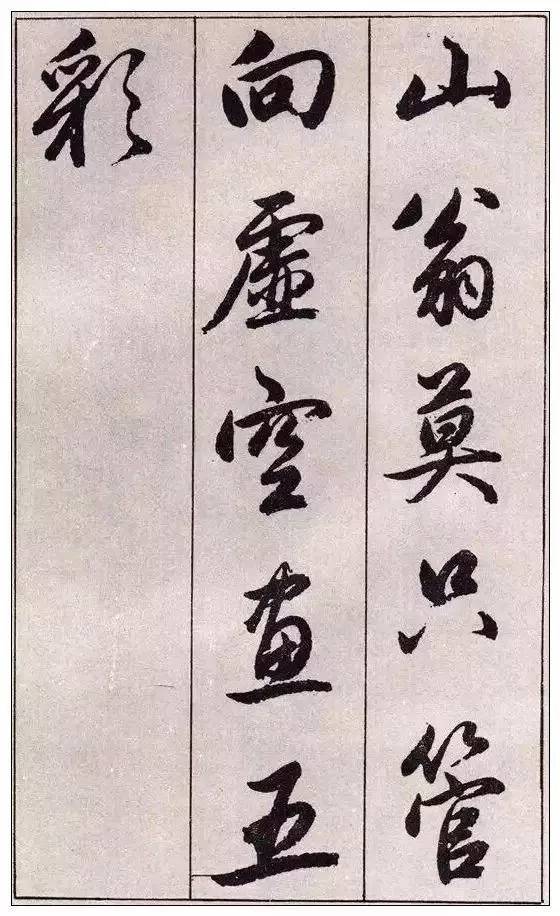 山翁莫只管
向虚空画五
彩